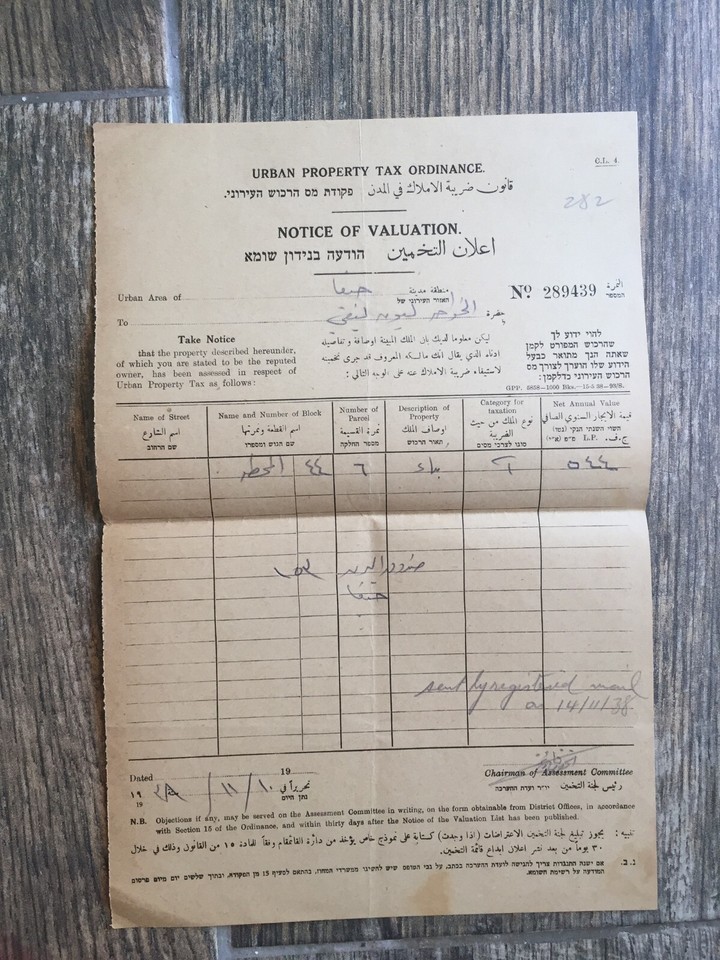 C.L. 4.
URBAN PROPERTY TAX ORDINANCE.
قانون ضريبة الاملاك في المدن פקודת מס הרכוש העירוני.
282
NOTICE OF VALUATION.
اعلان التخمين הודעה בנידון שומא
Urban Area of حيفا منطقة مدينة
האזור העירוני של
No 289439 النمرة
המספר
To الخواجه حضرة
Take Notice
that the property described hereunder,
of which you are stated to be the reputed
owner, has been assessed in respect of
Urban Property Tax as follows:
ليكن معلوما لديك بان الملك المبينة اوصافة وتفاصيله
ادناه الذي يقال انك مالكه المعروف قد جرى تخمينه
لاستيفاء ضريبة الاملاك عنه على الوجه التالي:
להוי ידוע לך
שהרכוש המפורט לקמן
שאתה הנך מתואר כבעל
הידוע שלו הוערך לצורך מס
הרכוש העירוני כדלקמן:
GPP. 6898—1000 Bks.—15-5 38—99/S.
Name of Street
اسم الشارع
שם הרחוב
Name and Number of Block
اسم القطعة ونمرتها
שם הגוש ומספרו
Number of
Parcel
نمرة القسيمة
מספר החלקה
Description of
Property
اوصاف الملك
תאור הרכוש
Category for
taxation
نوع الملك من حيث
الضريبة
סוגו לצרכי מסים
Net Annual Value
قيمة الايجار السنوي الصافي
השווי השנתי הנקי (נטו)
ج.ف. L.P. פ״מ (א״י)
المحطه ٤٤ ٦ بناء ٦ ٥٤٤
صندوق البريد
حيفا
sent by registered mail
on 14/11/38
Chairman of Assessment Committee
رئيس لجنة التخمين יו״ר ועדת ההערכה
Dated 19
١٩٣٨ / ١١ / ١٠ تحريرا في
19 נתן היום
N.B. Objections if any, may be served on the Assessment Committee in writing, on the form obtainable from District Offices, in accordance
with Section 15 of the Ordinance, and within thirty days after the Notice of the Valuation List has been published.
تنبيه: يجوز تبليغ لجنة التخمين الاعتراضات (اذا وجدت) كتابة على نموذج خاص يؤخذ من دائرة القائمقام وفقا للمادة ١٥ من القانون وذلك في خلال
٣٠ يوما من بعد نشر اعلان ايداع قائمة التخمين.
נ. ב. אם ישנה התנגדות צריך להגישה לועדת ההערכה בכתב, על גבי הטופס שיש להשיגו ממשרדי המחוז, בהתאם לסעיף 15 מן הפקודה, ובתוך שלשים יום מיום פרסום
המודעה על רשימת השומא.